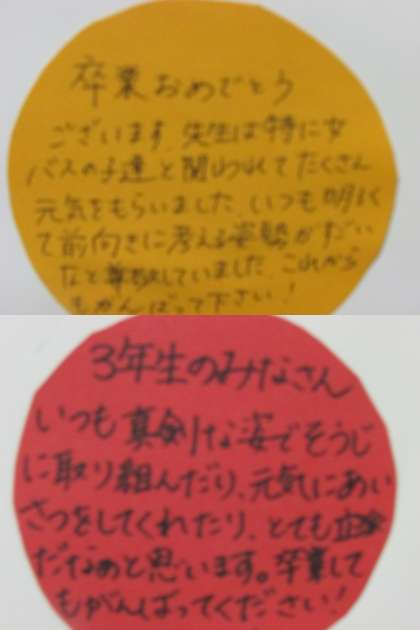 卒業おめでとう
ございます。先生は特に女
バスの子達と関われてたくさん
元気をもらいました。いつも明るく
て前向きに考える姿勢がすごい
なと尊敬していました。これから
もがんばって下さい!
3年生のみなさん
いつも真剣な姿でそうじ
に取り組んだり、元気にあい
さつをしてくれたり、とても立派
だなぁと思います。卒業して
もがんばってください!